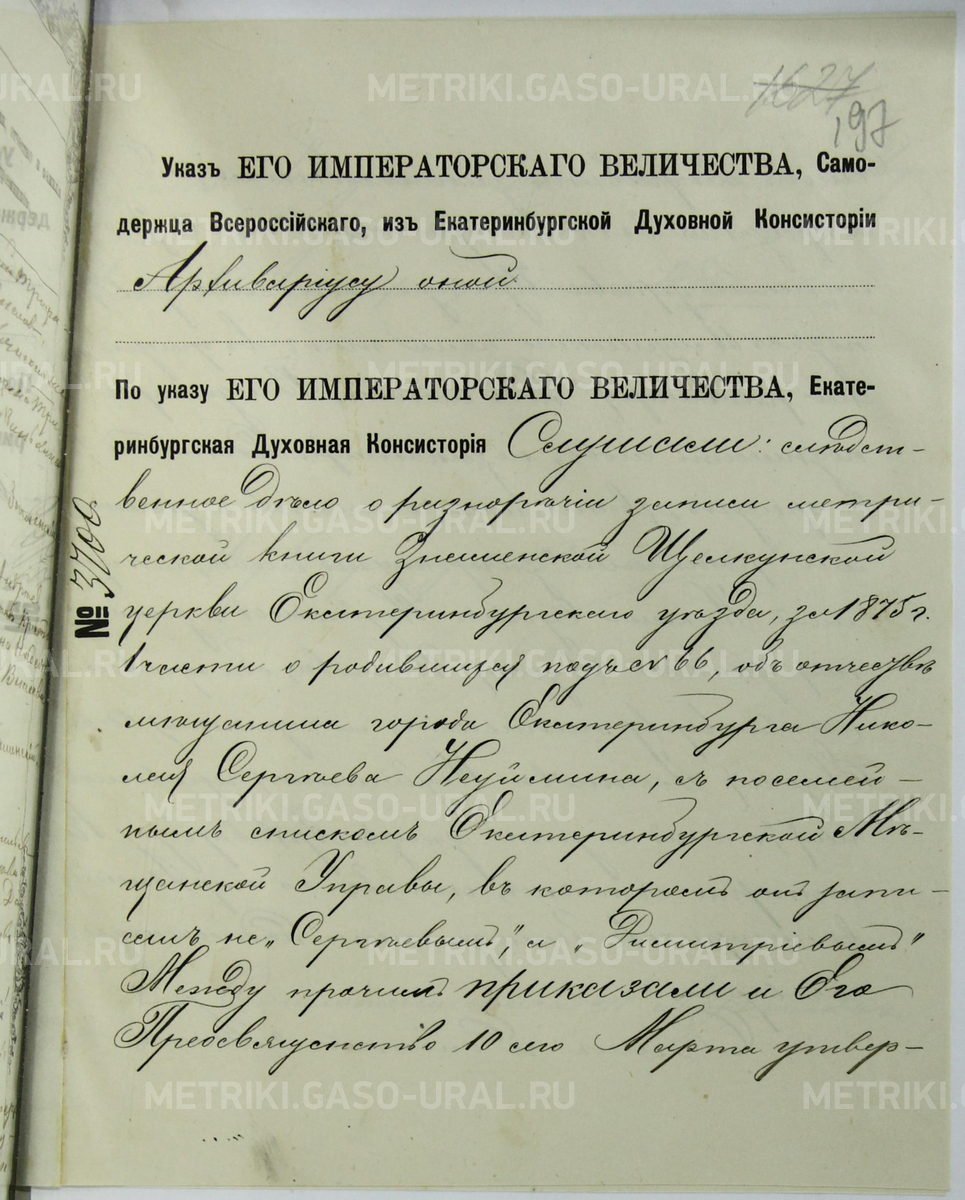 1627
197
Указъ ЕГО ИМПЕРАТОРСКАГО ВЕЛИЧЕСТВА, Само-
держца Всероссійскаго, изъ Екатеринбургской Духовной Консисторіи
Архиваріусу оной
По указу ЕГО ИМПЕРАТОРСКАГО ВЕЛИЧЕСТВА, Екате-
ринбургская Духовная Консисторія Слушали: слѣдст-
венное дѣло о разнорѣчіи записи метри-
ческой книги Знаменской Щелкунской
церкви Екатеринбургскаго уѣзда, за 1875 г.
1 части о родившихся подъ № 66, объ отчествѣ
мѣщанина города Екатеринбурга Нико-
лая Сергѣева Неуймина, съ посемей-
нымъ спискомъ Екатеринбургской Мѣ-
щанской Управы, въ которомъ онъ запи-
санъ не „Сергѣевымъ", а „Димитріевымъ"
Между прочимъ приказали и Его
Преосвященство 10 сего Марта утвер-
№ 3700
METRIKI.GASO-URAL.RU